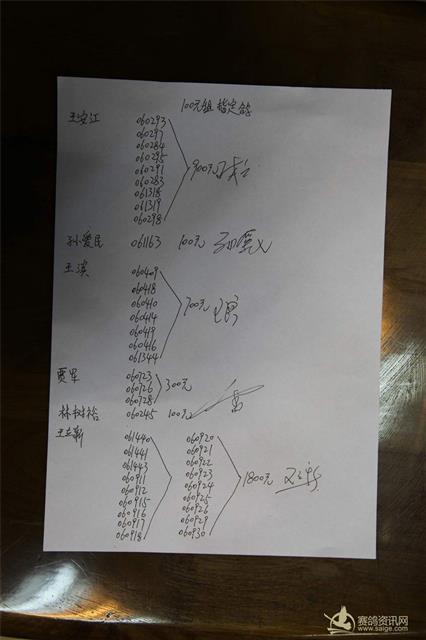 100元组 指定鸽
王安江 060293
060297
060284
060295
060291 900元
060283
061318
061319
060298
孙爱民 061163 100元
王滨 060409
060418
060410
060414 700元
060419
060416
061344
贾军 060723
060726 300元
060728
林树裕 060245 100元
王立新 061440 060920
061441 060921
061443 060922
060911 060923
060912 060924 1800元
060915 060925
060916 060926
060917 060929
060918 060930
赛鸽资讯网
www.saige.com